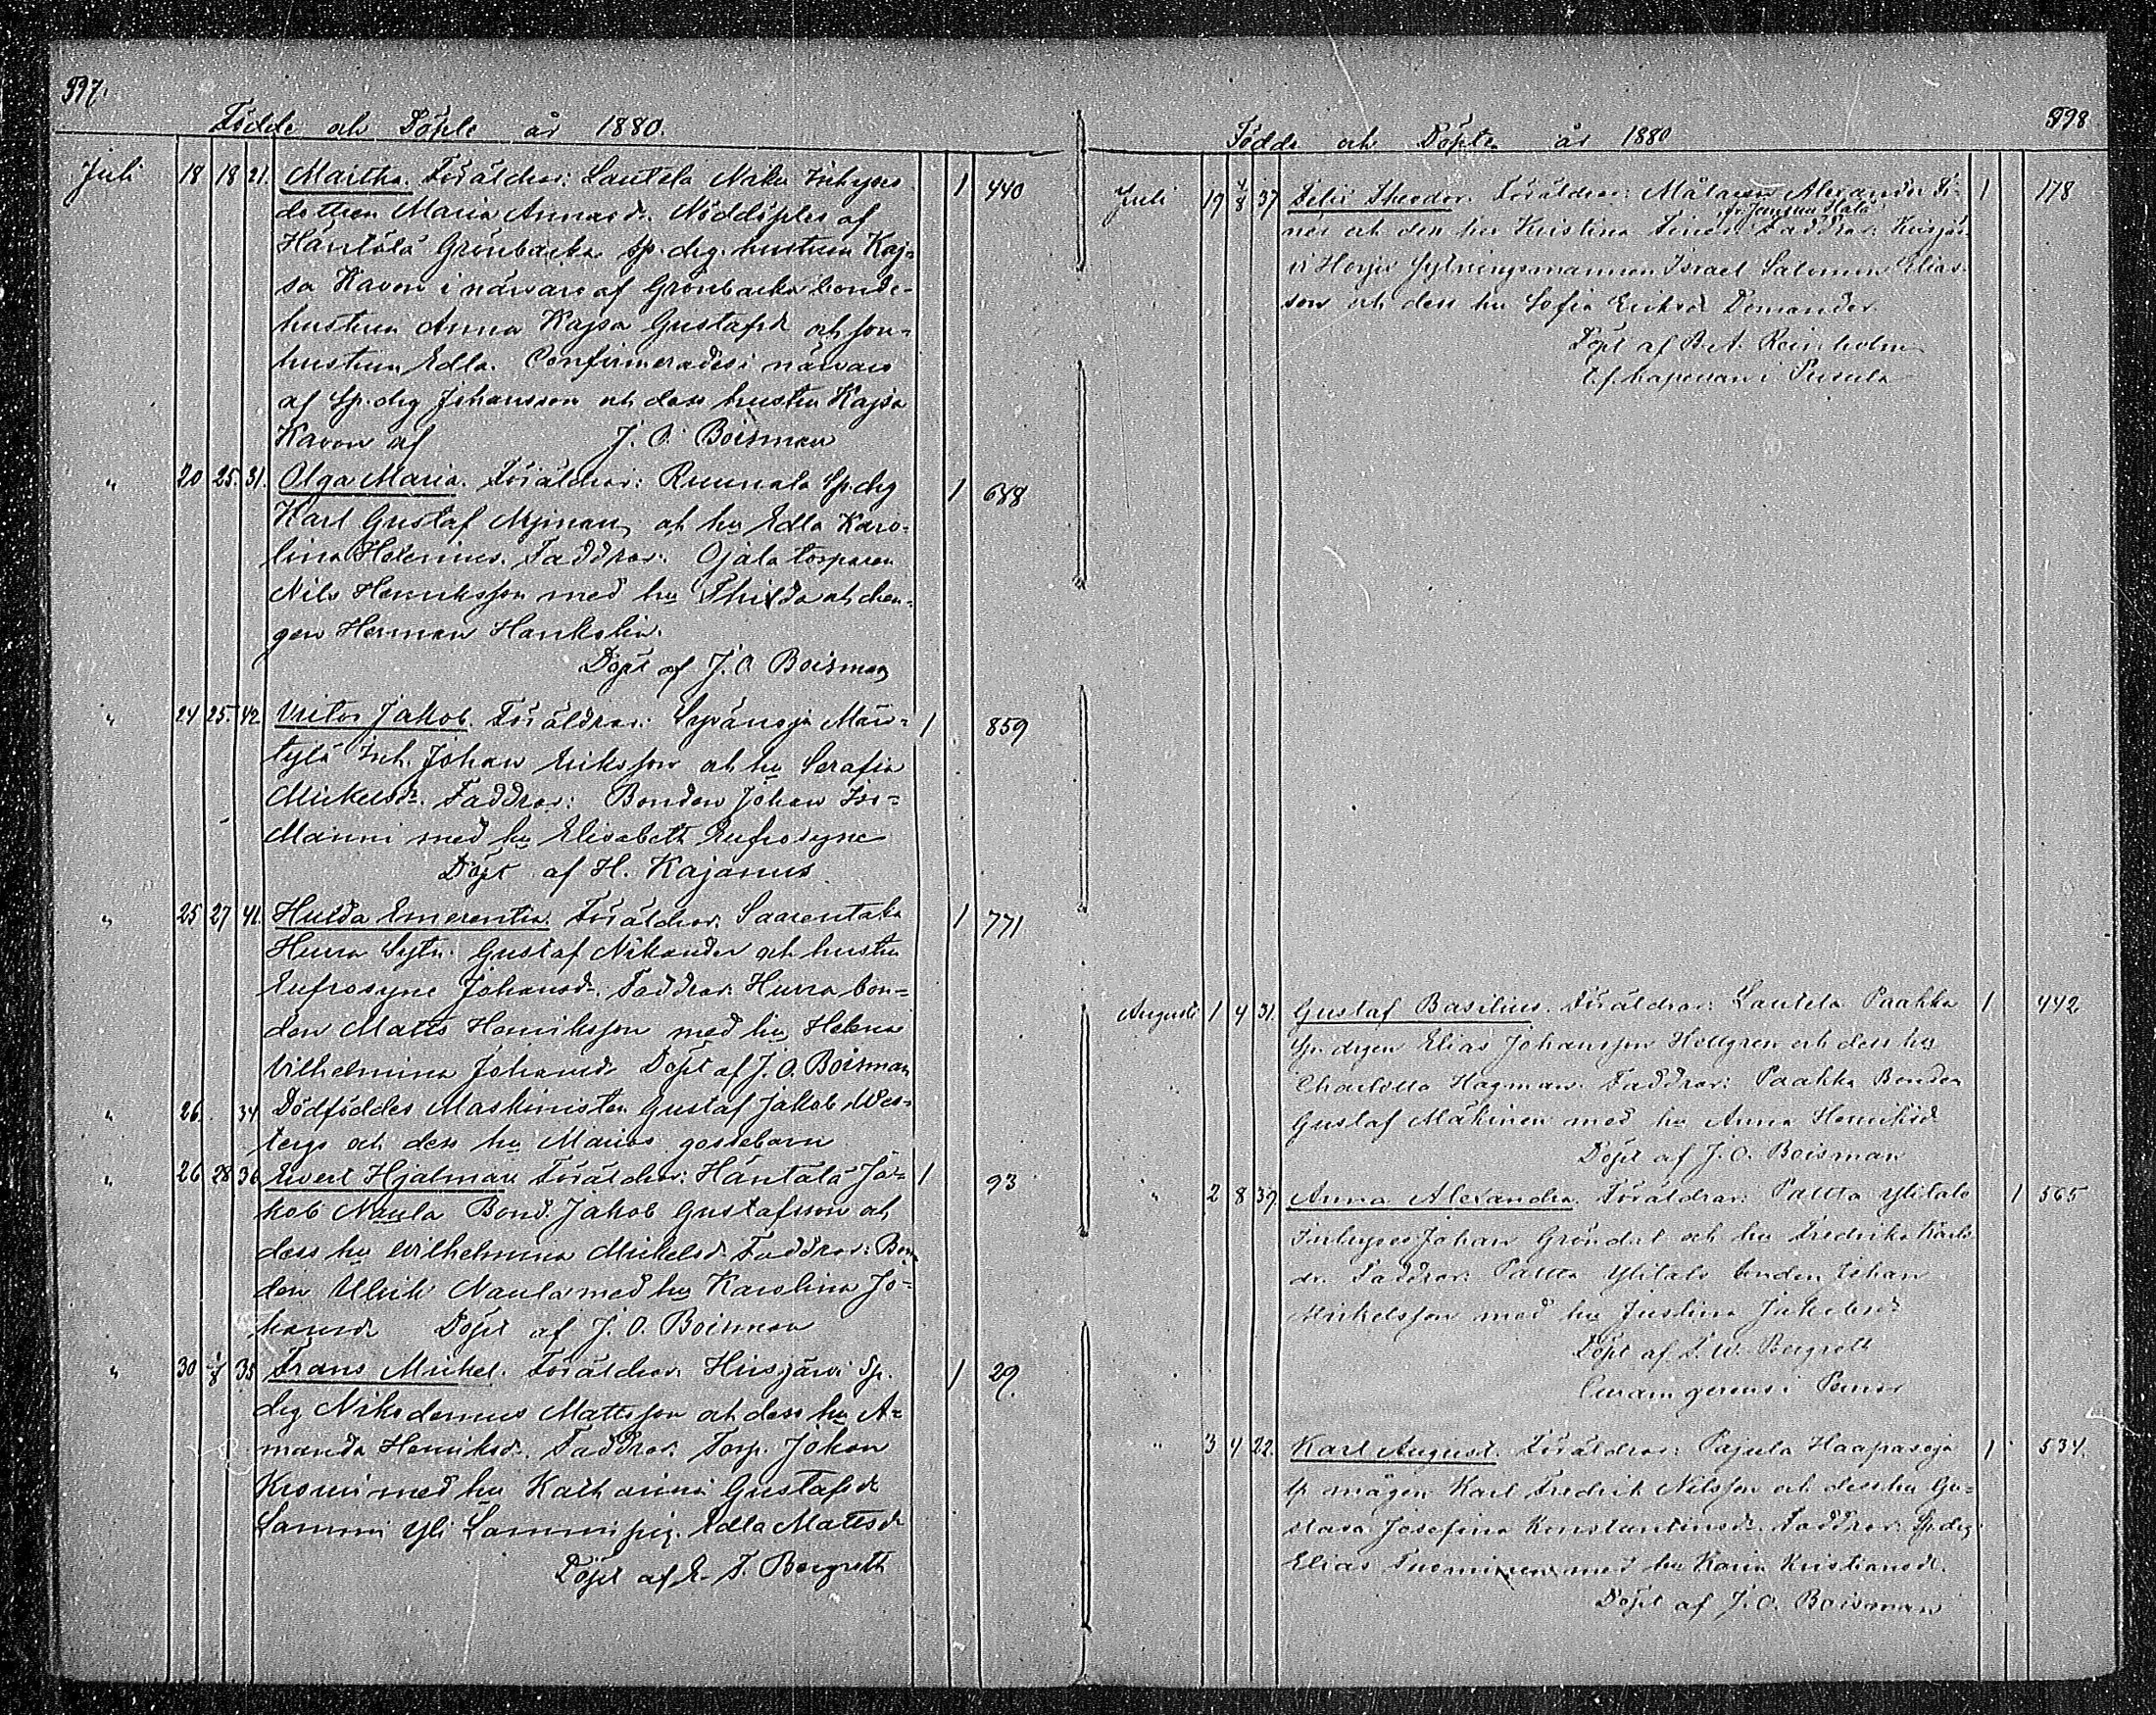 597.
Födde och Döpte år 1880.
Juli 18 18 21. Martha. Föräldrar: Lautela Naku Inhyses 1 440
dottren Maria Annasdr. Nöddöptes af
Häntälä Grönbacka sp.drg. hustrun Kaj-
sa Kavon i närvaro af Grönbacka bonde-
hustrun Anna Kajsa Gustafsdr och son-
hustrun Edla. Confirmerades i närvaro
af Sp.drg Johansson och dess hustru Kajsa
Kavon af J. O. Boisman
" 20 25. 31. Olga Maria. Föräldrar: Ruunala Sp.drg 1 688
Karl Gustaf Nyman och hu Edla Karo-
lina Helenius. Faddrar: Ojala torparen
Nils Henriksson med hu Thilda och dren-
gen Herman Hankalin.
Döpt af J. O. Boisman
" 24 25. 42 Viktor Jakob. Föräldrar: Syvänoja Män- 1 859
tylä Inh. Johan Eriksson och hu Serafia
Mickelsdr. Faddrar: Bonden Johan Iso-
Manni med hu Elisabeth Eufrosyne
Döpt af H. Kajanus
" 25 27 41. Hulda Emerentia. Föräldrar: Saarentaka 1 771
Hurra Sytn. Gustaf Nikander och hustru
Eufrosyne Johansdr. Faddrar: Hurra bon-
den Matts Henriksson med hu Helena
Vilhelmina Johansdr Döpt af J. O. Boisman
" 26. 34 Dödföddes Maskinisten Gustaf Jakob Wes-
tergs och dess hu Marias gossebarn
" 26 28 36 Evert Hjalmar Föräldrar: Häntälä Ja- 1 93
kob Naula Bond. Jakob Gustafsson och
dess hu Wilhelmina Mickelsdr. Faddrar: Bon
den Ulrik Naula med hu Karolina Jo-
hansdr Döpt af J. O. Boisman
" 30 1/8 35 Frans Mickel. Föräldrar: Hirsjärvi Sp. 1 29.
drg Nikodemus Mattsson och dess hu A-
manda Henriksdr. Faddrar: Torp. Johan
Krouvi med hu Katharina Gustafsdr
Lammi Yli Lammi pig. Edla Mattsdr
Döpt af E. F. Bergroth
598
Födde och Döpte år 1880
Juli 19 4/8 37 Felix Theodor. Föräldrar: Målaren Alexander Fi- 1 178
nér och dess hu Kristina Finér Faddrar:
vi Sytningsmannen Israel Salomon Elias-
son och dess hu Sofia Eriksdr Domander
Döpt af B. A. Reinholm
t.f. kapellan i Pusula
Augusti 1 4 31. Gustaf Basilius. Föräldrar: Lautela Paahka 1 442
Sp. drgen Elias Johansson Hellgren och dess hu
Charlotta Hagman. Faddrar: Paahka Bonden
Gustaf Mäkinen med hu Anna Henriksdr
Döpt af J. O. Boisman
" 2 8 39. Anna Alexandra. Föräldrar: Palttta Ylitalo 1 565
Inhyses Johan Gröndal och hu Fredrika Karls
dr. Faddrar: Palttta Ylitalo bonden Johan
Mickelsson med hu Justina Jakobsdr
Döpt af F. W. Bergroth
Curam gerens i
" 3 4 22. Karl August. Föräldrar: Pajula Haapaoja 1 534.
sp mågen Karl Fredrik Nilsson och dess hu Gu-
stava Josefina Konstantinsdr. Faddrar: Sp.drg
Elias Tuominen med hu Karin Kristiansdr.
Döpt af J. O. Boisman